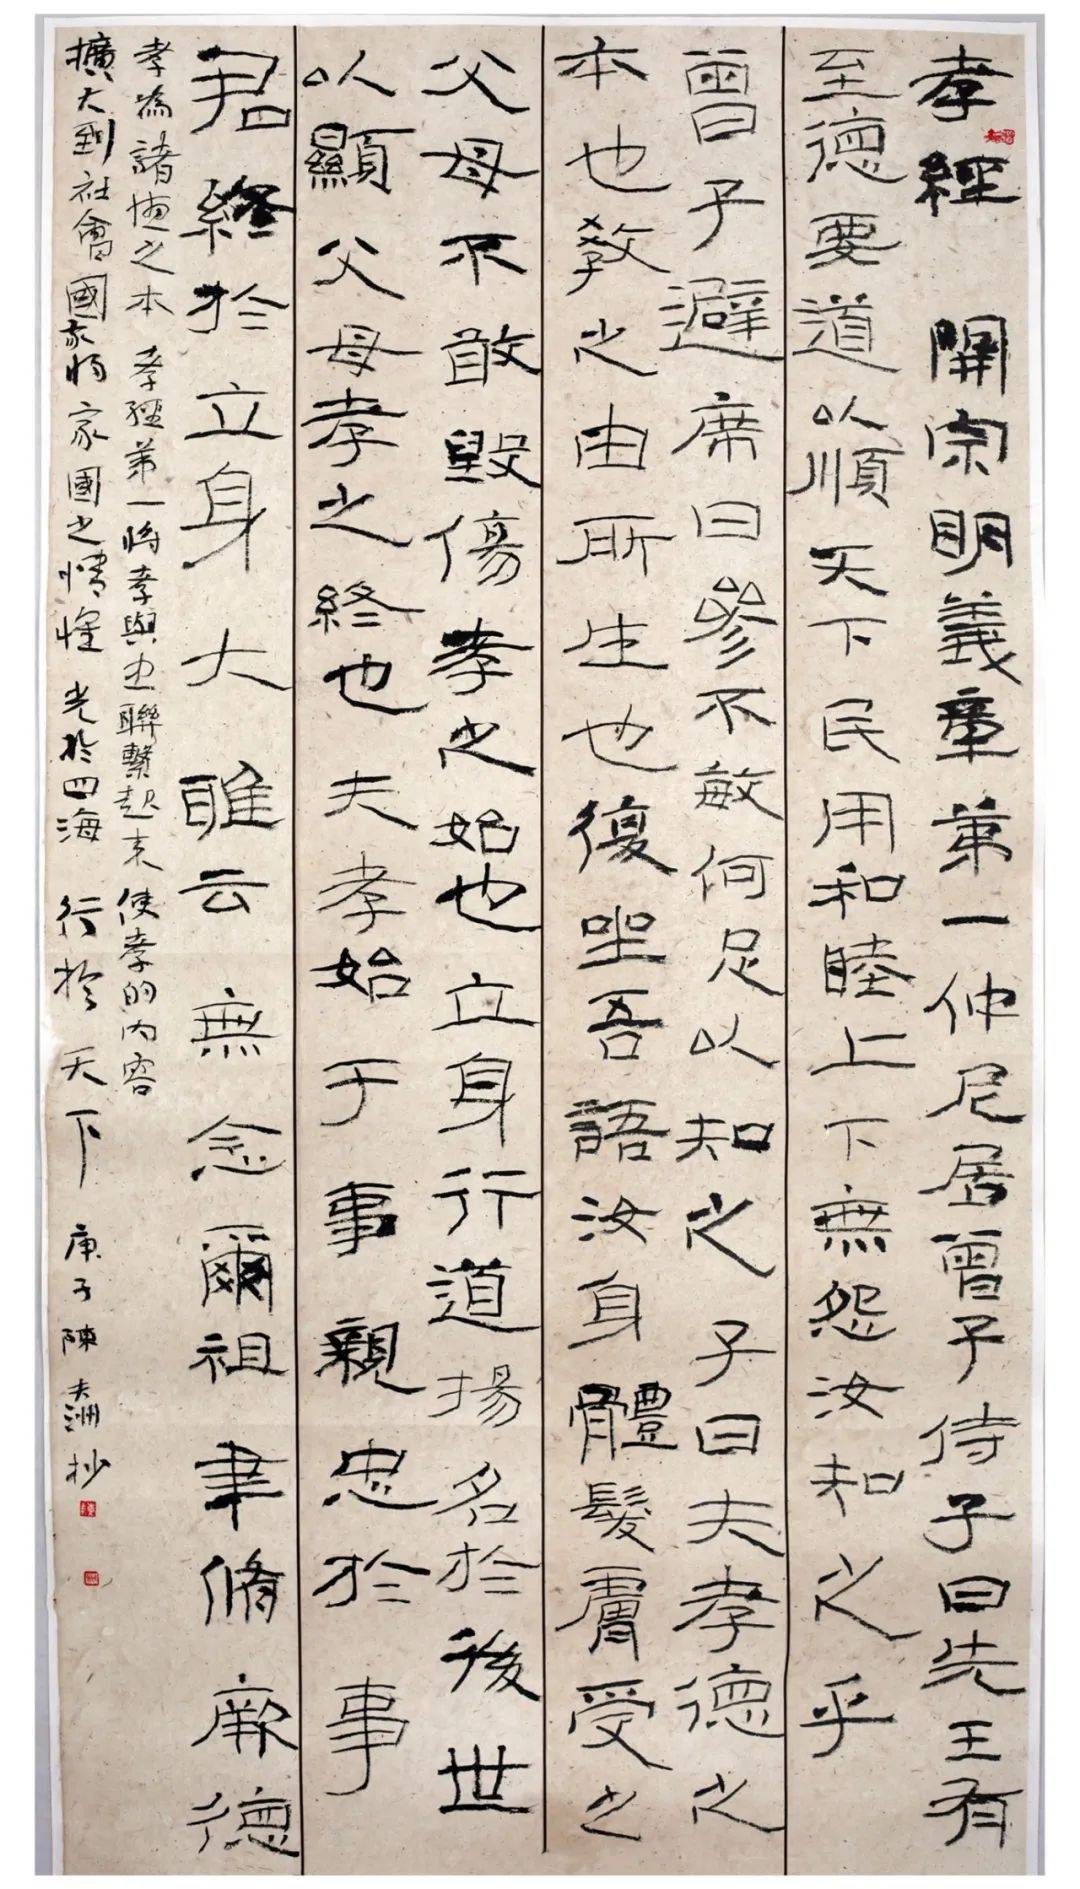 孝經 開宗明義章第一仲尼居曾子侍子曰先王有
至德要道以順天下民用和睦上下無怨汝知之乎
曾子避席曰參不敏何足以知之子曰夫孝德之
本也教之由所生也復坐吾語汝身體髮膚受之
父母不敢毀傷孝之始也立身行道揚名於後世
以顯父母孝之終也夫孝始于事親忠於事
君終於立身大雅云無念爾祖聿脩厥德
孝為諸德之本 孝經第一將孝與忠聯繫起來 使孝的內容
擴大到社會國家將家國之情懷 光於四海 行於天下 庚子陳夫洲抄